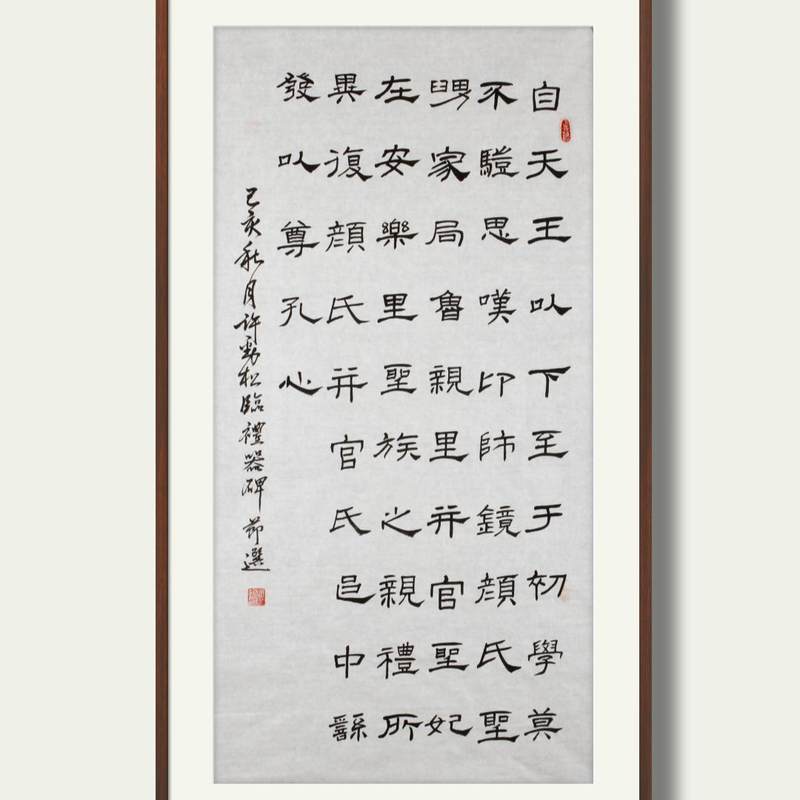 自天王以下至于初學莫
不思嘆卬師鏡顏氏聖
舅家居魯親里并官聖妃
在安樂里聖族之親禮所
異復顏氏并官氏邑中繇
發以尊孔心
己亥秋月許勁松臨禮器碑節選